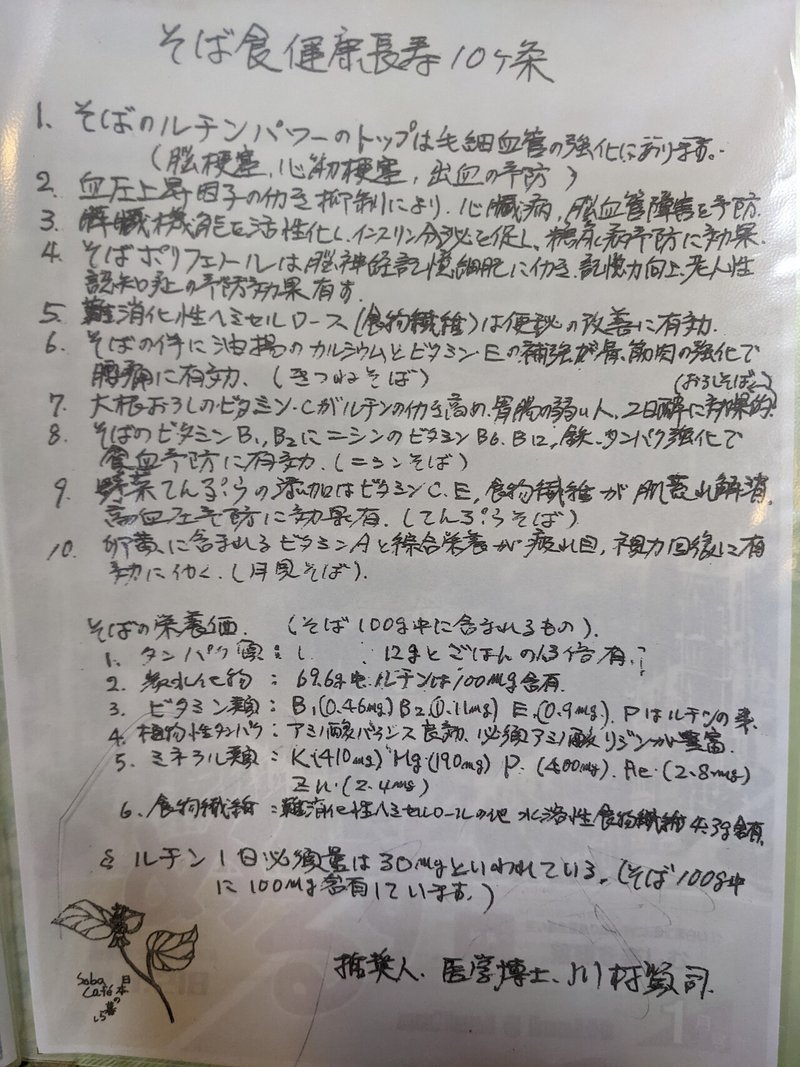 そば食健康長寿10ヶ条
1. そばのルチンパワーのトップは毛細血管の強化にあります。
(脳梗塞, 心筋梗塞, 出血の予防)
2. 血圧上昇因子の仂き抑制により、心臓病, 脳血管障害を予防.
3. 膵臓機能を活性化し、インスリン分泌を促し、糖尿病予防に効果.
4. そばポリフェノールは脳神経記憶細胞に仂き、記憶力向上、老人性
認知症の予防効果有す.
5. 難消化性ヘミセルロース(食物繊維)は便秘の改善に有効.
6. そばの伴に油揚のカルシウムとビタミン・Eの補強が骨、筋肉の強化で
腰痛に有効. (きつねそば)
(おろしそば)
7. 大根おろしのビタミン・Cがルチンの仂き高め、胃腸の弱い人、2日酔に効果的.
8. そばのビタミンB1, B2にニシンのビタミンB6. B12, 鉄・タンパク強化で
貧血予防に有効. (ニシンそば)
9. 野菜てんぷらの添加はビタミンC.E, 食物繊維が肌荒れ解消.
高血圧予防に効果有. (てんぷらそば)
10. 卵黄に含まれるビタミンAと綜合栄養が疲れ目, 視力回復に有
効に仂く. (月見そば).
そばの栄養価. (そば100g中に含まれるもの).
1. タンパク質: 12gとごはんの 倍有.
2. 炭水化物 : 69.6g中. ルチンは100mg含有.
3. ビタミン類 : B1(0.46mg) B2(0.11mg) E.(0.9mg). Pはルチンの素.
4. 植物性タンパク : アミノ酸バランス良効. 必須アミノ酸リジンが豊富.
5. ミネラル類 : K・(410mg) Mg・(190mg) P. (400mg). Fe・(2.8mg)
Zn.(2.4mg)
6. 食物繊維 : 難消化性ヘミセルロールの他 水溶性食物繊維4.3g含有.
& ルチン1日必須量は30mgといわれている。(そば100g中
に100mg含有しています。)
医学博士、川村賢司.
Soba
Café
日本の